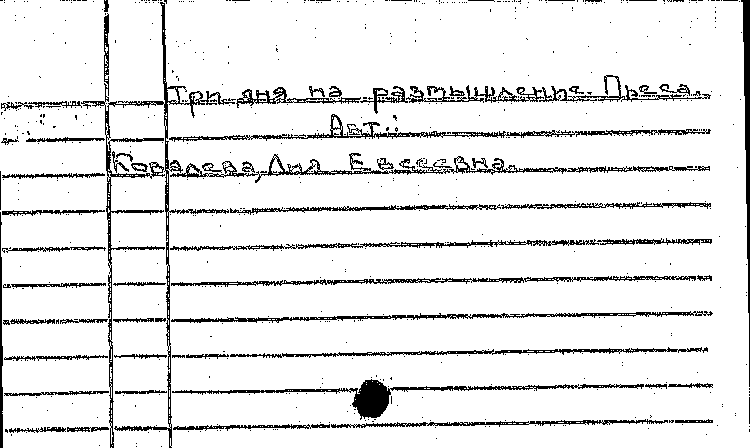 Три дня на размышление. Пьеса.
Авт.:
Ковалева, Лия Евсеевна.